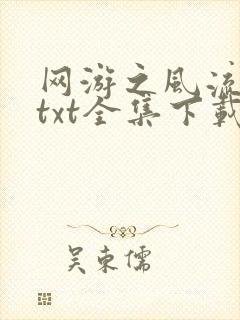 网游之风流
txt全集下载
吴东儒